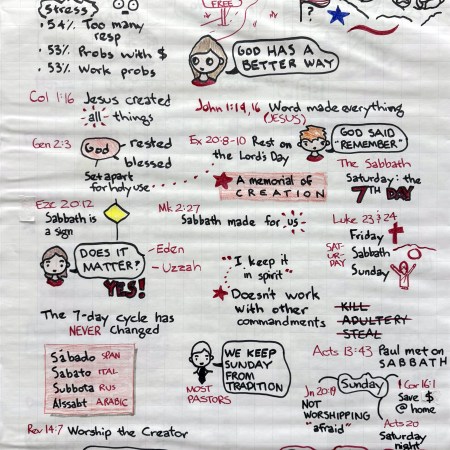 FREE
Stress
• 54% Too many
resp
• 53% Probs with $
• 53% Work probs
GOD HAS A
BETTER WAY
Col 1:16 Jesus created
all things
John 1:14,16 Word made everything
(JESUS)
Gen 2:3
God
rested
blessed
Set apart
for holy use
Ex 20:8-10 Rest on
the Lord's Day
GOD SAID
"REMEMBER"
The Sabbath
Saturday: the
7TH DAY
A memorial of
CREATION
Eze 20:12
Sabbath is
a sign
Mk 2:27
Sabbath made for us
Luke 23 & 24
Friday
SATURDAY
Sabbath
Sunday
DOES IT
MATTER?
YES!
- Eden
- Uzzah
"I keep it
in spirit"
Doesn't work
with other
commandments
KILL
ADULTERY
STEAL
The 7-day cycle has
NEVER changed
Sábado SPAN
Sabato ITAL
Subbota RUS
Alssabt ARABIC
MOST
PASTORS
WE KEEP
SUNDAY
FROM
TRADITION
Acts 13:43 Paul met on
SABBATH
Sunday
Jn 20:19
NOT
WORSHIPPING
"afraid"
1 Cor 16:1
Save $
@ home
Acts 20
Saturday
night
Rev 14:7 Worship the Creator